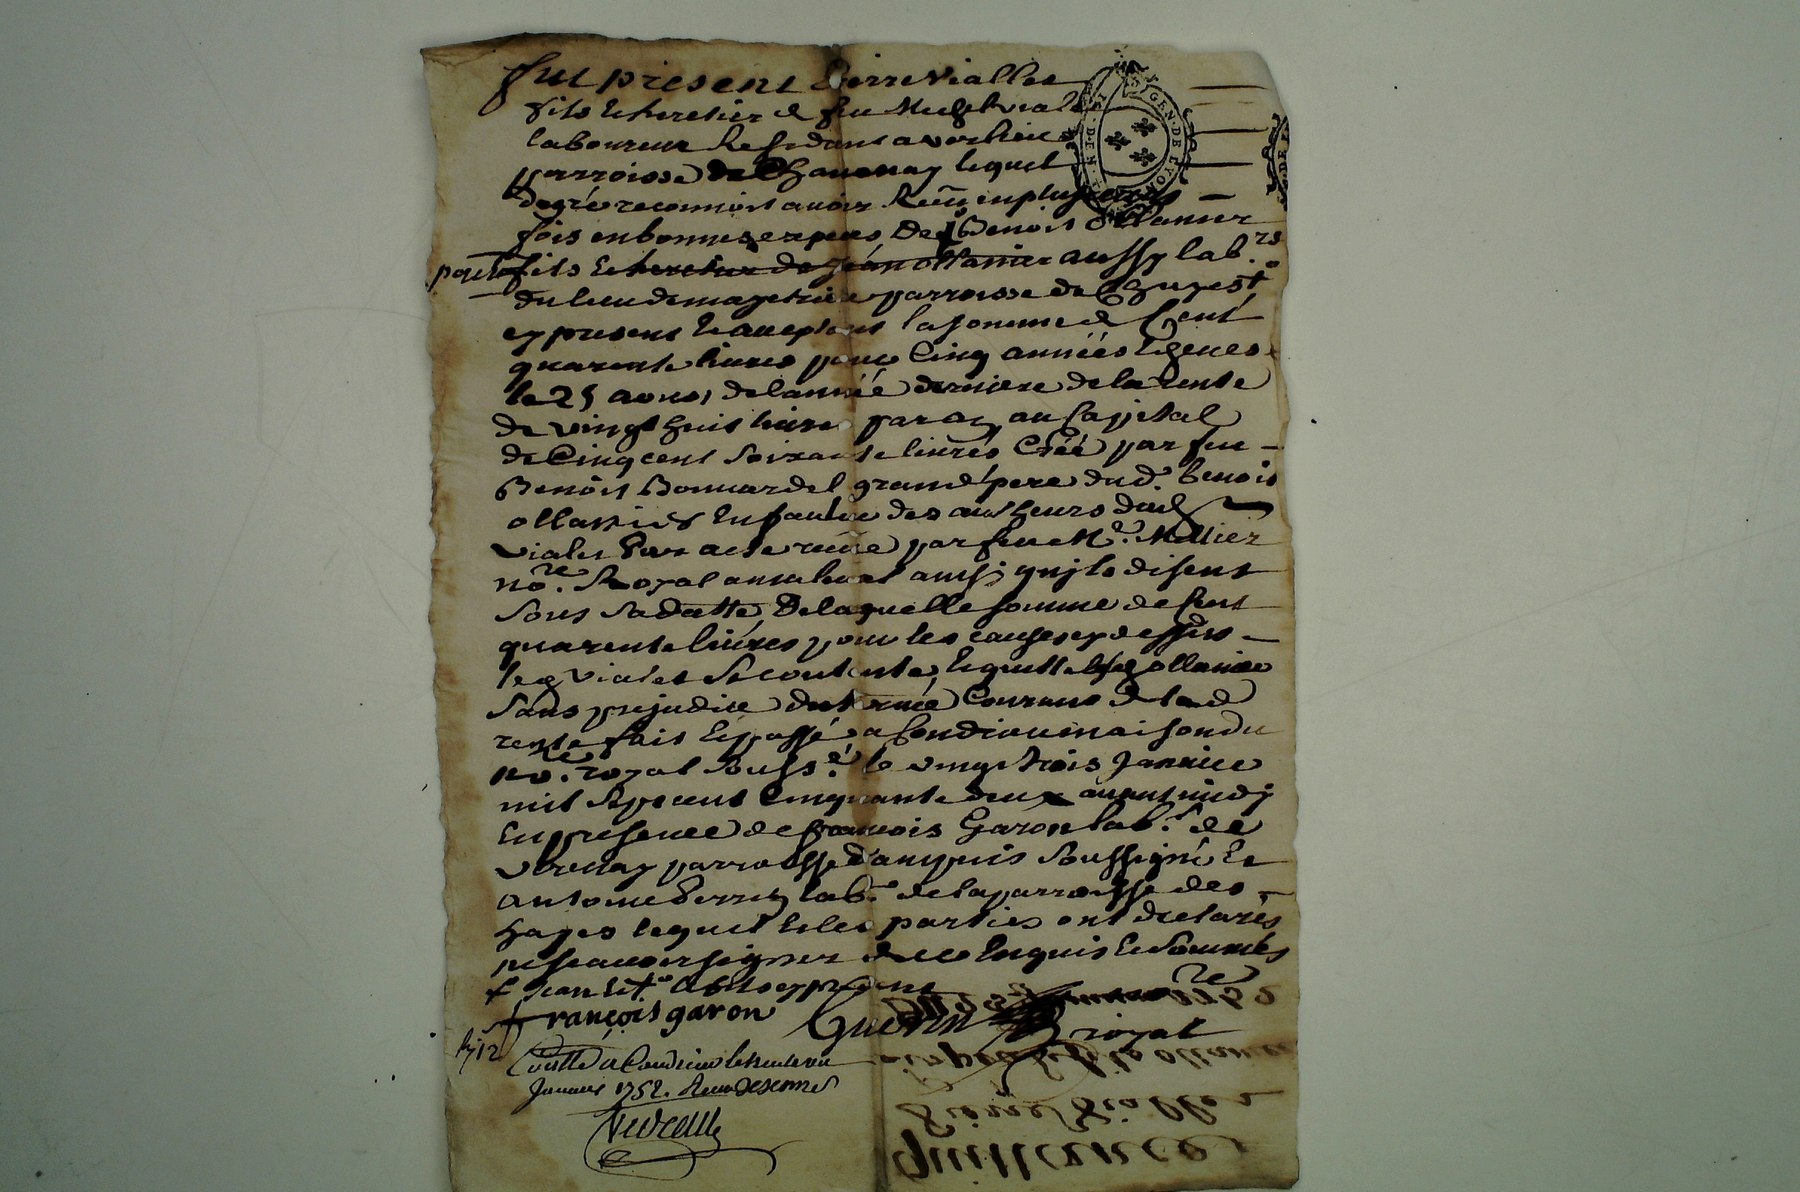 fut present Pierre Viallet
fils et heretier de feu Michel viallet
laboureur Residant a verlieu
parroisse de Chavanay lequel
degré reconnoit avoir Receu en plusieurs
fois en bonnes especes De Benoit Ollanier
fils et heretier de Jean ollanier aussy lab.rs
du lieu de parroisse de
cy present et acceptant la somme de Cent
quarente livres pour Cinq années Echeues
le 25 aoust de l'année derniere de la rente
de vingt huit livres par an au Capital
de Cinq cent soixante livres Créé par feu
Benoit Bonnardel grand pere dud. benoit
ollanier En faveur des autheurs dud.
vialet Par acte receu par feu M.e Mellier
no.re Royal ainsi qu'ils disent
sous sa datte De laquelle somme de Cent
quarente livres pour les causes cy dessus
led. vialet se contente et quitte led. ollanier
sans prejudice du terme Courant de lad.
rente fait et passé a Condrieu maison du
no.re royal souss.é le vingt trois Janvier
mil sept cent cinquante deux avant midy
En presence de françois Garon lab.r de
Verenay parroisse d'ampuis soussigné et
antoine Perret lab.r de la parroisse des
hayes lequel et les parties ont declarés
ne scavoir signer de ce Enquis et sommés
françois garon
Guerin royal
R 12s
Con.llé a Condrieu le
Janvier 1752. Receu douze sols
GEN. DE LYON
Quittance
Pierre Viallet